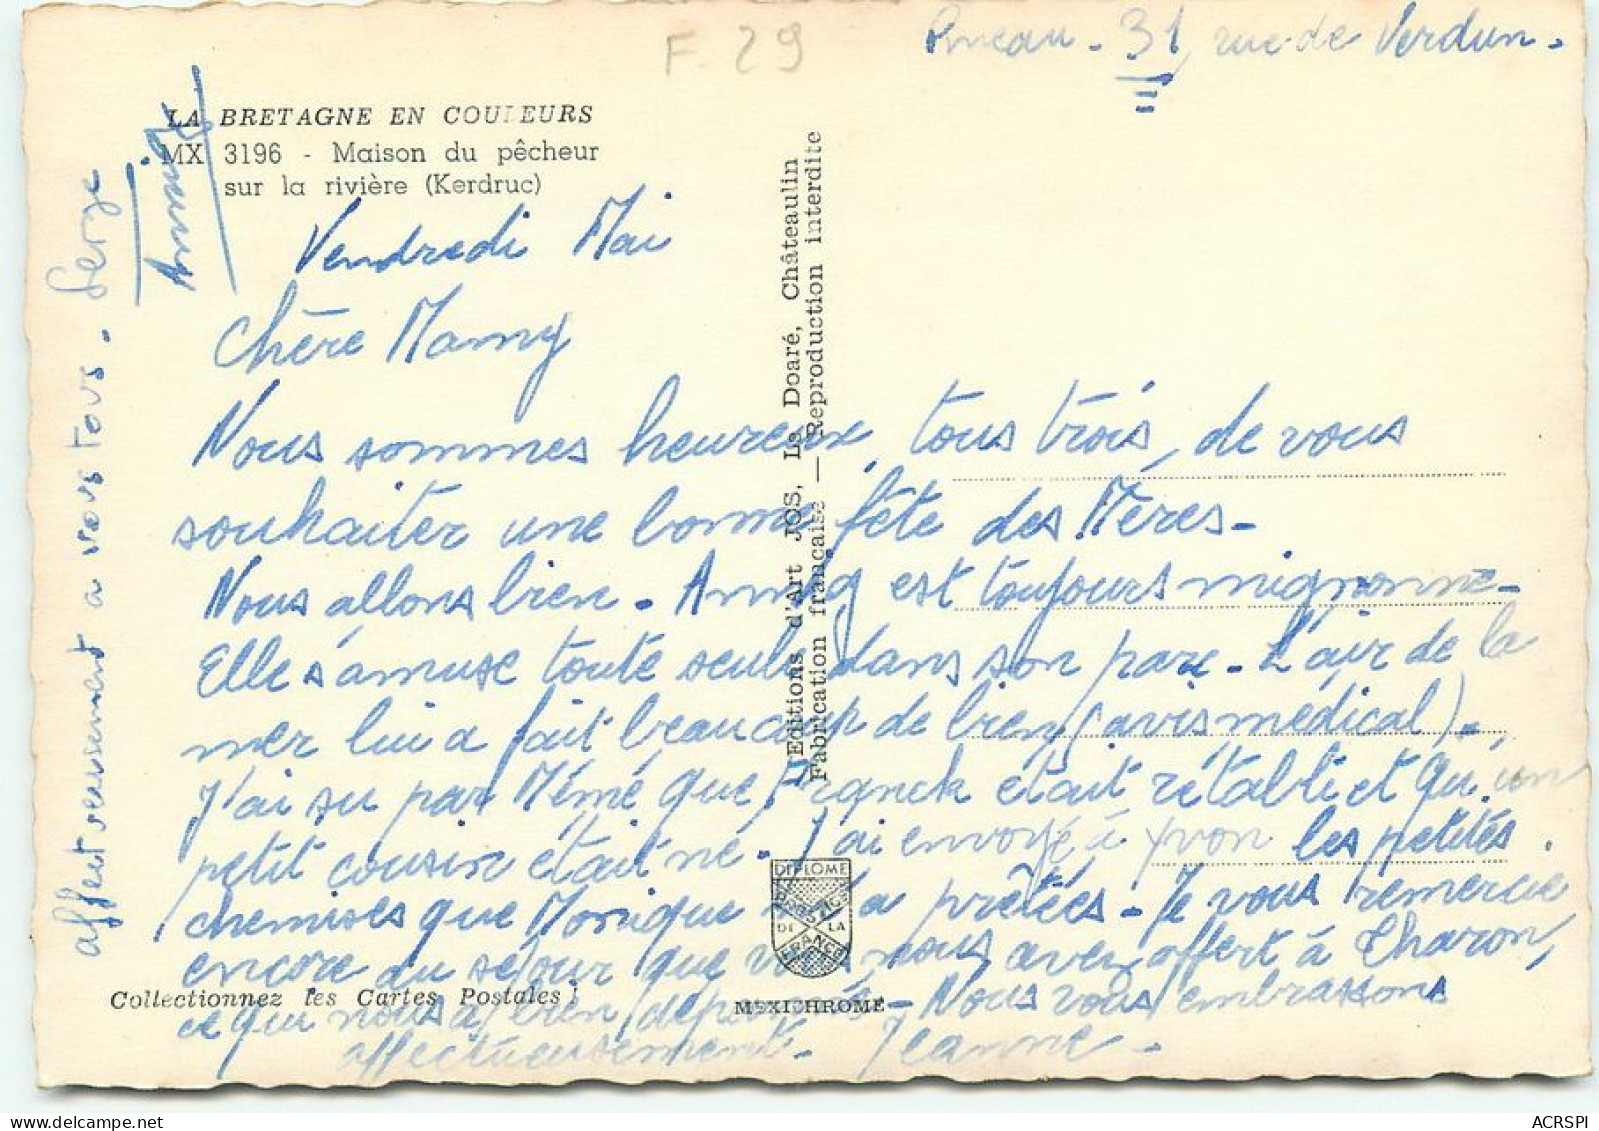 F. 29
31, rue de Verdun.
LA BRETAGNE EN COULEURS
MX 3196 - Maison du pêcheur
sur la rivière (Kerdruc)
Vendredi Mai
Chère Mamy
Nous sommes heureux, tous trois, de vous
souhaiter une bonne fête des Mères -
Nous allons bien - Annig est toujours mignonne -
Elle s'amuse toute seule dans son parc - L'air de la
mer lui a fait beaucoup de bien (avis médical) -
J'ai su par Mémé que Franck était rétabli et qu'un
petit cousin était né. J'ai envoyé à Yvon les petites
chemises que Monique m'a prêtées - Je vous remercie
encore du séjour que vous nous avez offert à Tharon,
ce qui nous a bien dépannés - Nous vous embrassons
affectueusement. Jeanne -
affectueusement a vous tous - Serge
Annig
Editions d'Art JOS, Le Doaré, Châteaulin
Fabrication française — Reproduction interdite
DIPLOME
DE LA
FRANCE
MEXICHROME
Collectionnez les Cartes Postales !
ACRSPI